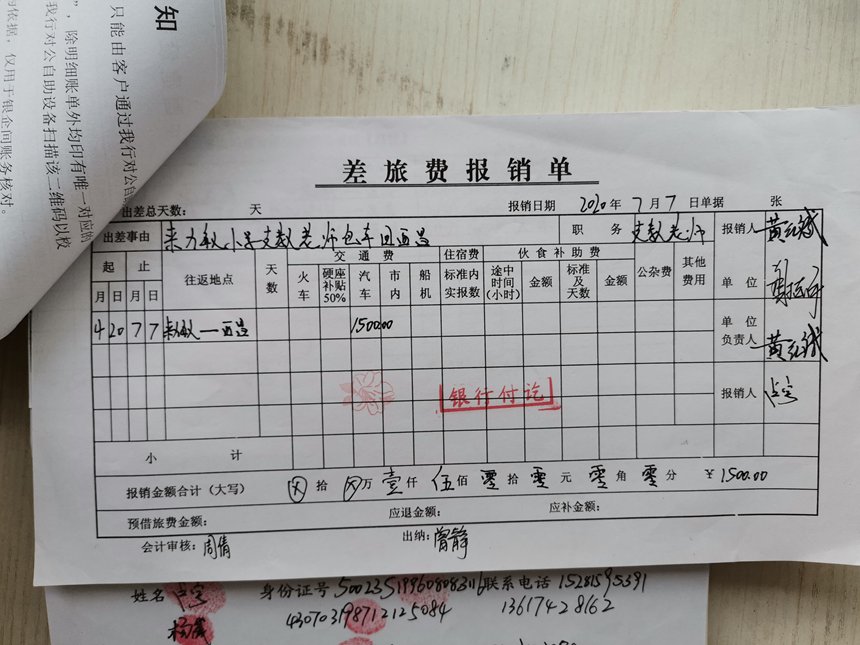 知
只能由客户通过我行对公自
”，除明细账单外均印有唯一对应的
我行对公自助设备扫描该二维码以校
的依据，仅用于银企间账务核对。
差旅费报销单
出差总天数： 天 报销日期 2020年7月7日单据 张
出差事由 小学支教老师包车回西昌 职务 支教老师 报销人
起 止 往返地点 天数 交通费 住宿费 伙食补助费 公杂费 其他费用 单位
月 日 月 日 火车 硬座补贴50% 汽车 市内 船机 标准内实报数 途中时间(小时) 金额 标准及天数 金额
4 20 7 7 西昌 1500.00 单位负责人
银行付讫 报销人
小 计
报销金额合计（大写） 拾 万 壹仟 伍佰 零拾 零元 零角 零分 ￥1500.00
预借旅费金额： 应退金额： 应补金额：
会计审核：周倩 出纳：曾静
姓名 身份证号 联系电话
430703198712125084 13617428162